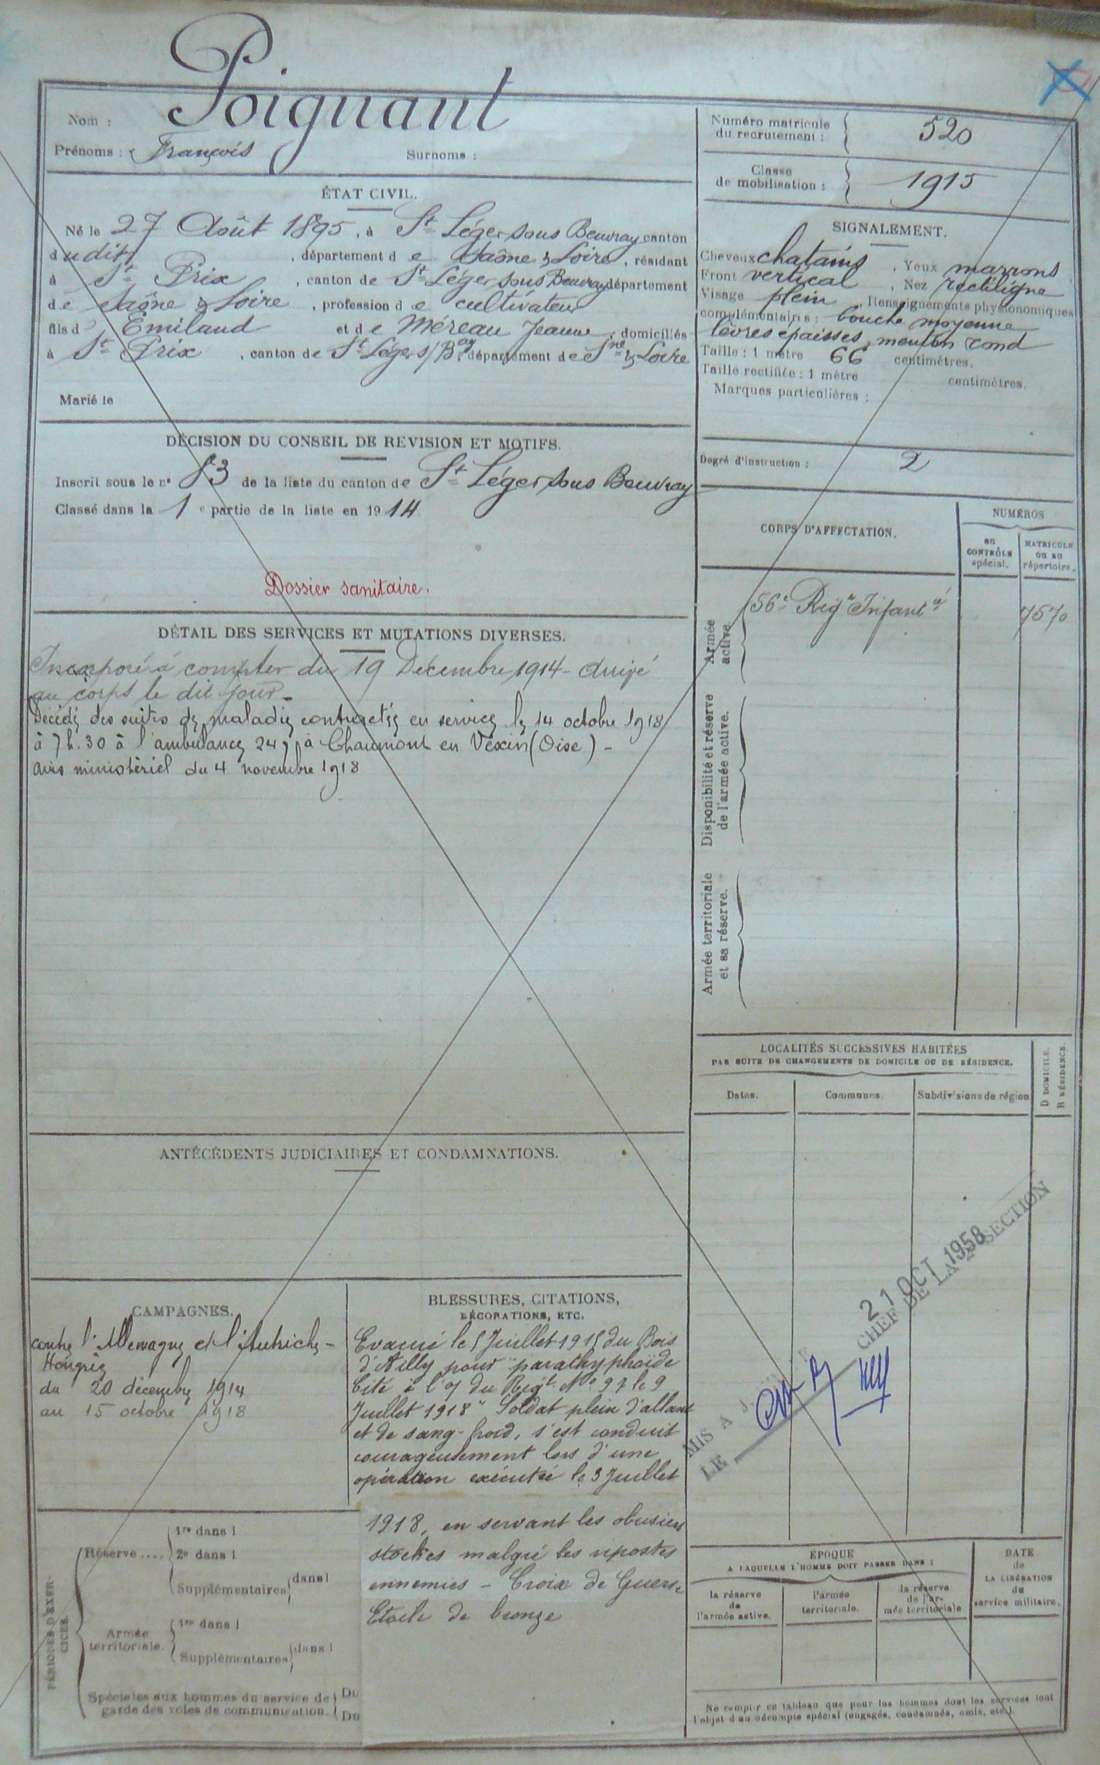 Nom : Poignant
Prénoms : François Surnoms :
Numéro matricule du recrutement : 520
Classe de mobilisation : 1915
ÉTAT CIVIL.
Né le 27 Août 1895, à St Léger sous Beuvray canton
dudit, département de Saône & Loire, résidant
à St Prix, canton de St Léger sous Beuvray département
de Saône & Loire, profession de cultivateur
fils d' Émiland et de Méreau Jeanne, domiciliés
à St Prix, canton de St Léger s/ Bay département de Sne & Loire
Marié le
SIGNALEMENT.
Cheveux chatains, Yeux marrons
Front vertical, Nez rectiligne
Visage plein, Renseignements physionomiques
complémentaires : bouche moyenne
lèvres épaisses, menton rond
Taille : 1 mètre 66 centimètres.
Taille rectifiée : 1 mètre centimètres.
Marques particulières :
Degré d'instruction : 2
DÉCISION DU CONSEIL DE RÉVISION ET MOTIFS.
Inscrit sous le no 83 de la liste du canton de St Léger sous Beuvray
Classé dans la 1e partie de la liste en 1914
Dossier sanitaire.
DÉTAIL DES SERVICES ET MUTATIONS DIVERSES.
Incorporé à compter du 19 Décembre 1914 - Arrivé
au corps le dit jour -
Décédé des suites de maladie contractée en service le 14 octobre 1918
à 7h.30 à l'ambulance 247 à Chaumont en Vexin (Oise) -
avis ministériel du 4 novembre 1918
CORPS D'AFFECTATION.
NUMÉROS
au CONTRÔLE spécial.
MATRICULE ou au répertoire.
Armée active.
56e Régt Infantie
7570
Disponibilité et réserve de l'armée active.
Armée territoriale et sa réserve.
LOCALITÉS SUCCESSIVES HABITÉES
PAR SUITE DE CHANGEMENTS DE DOMICILE OU DE RÉSIDENCE.
Dates. Communes. Subdivisions de région
D DOMICILE. R RÉSIDENCE.
ANTÉCÉDENTS JUDICIAIRES ET CONDAMNATIONS.
CAMPAGNES.
contre l'Allemagne et l'Autriche-
Hongrie
du 20 décembre 1914
au 15 octobre 1918
BLESSURES, CITATIONS,
DÉCORATIONS, ETC.
Evacué le 5 Juillet 1915 du Bois
d'Ailly pour parathyphoïde
Cité à l'O/ du Régt No 97 le 9
Juillet 1918 " Soldat plein d'allant
et de sang-froid, s'est conduit
courageusement lors d'une
opération exécutée le 3 Juillet
1918, en servant les obusiers
stockes malgré les ripostes
ennemies - Croix de Guerre
Etoile de bronze
MIS A J
LE
21 OCT 1958
CHEF DE LA 2e SECTION
PÉRIODES D'EXERCICES.
Réserve....
1re dans l
2e dans l
Supplémentaires dans l
Armée territoriale.
1re dans l
Supplémentaires dans l
Spéciales aux hommes du service de garde des voies de communication.
Du
Du
ÉPOQUE
A LAQUELLE L'HOMME DOIT PASSER DANS :
la réserve de l'armée active.
l'armée territoriale.
la réserve de l'armée territoriale
DATE de LA LIBÉRATION du service militaire.
Ne remplir ce tableau que pour les hommes dont les services font
l'objet d'un décompte spécial (engagés, condamnés, omis, etc.).